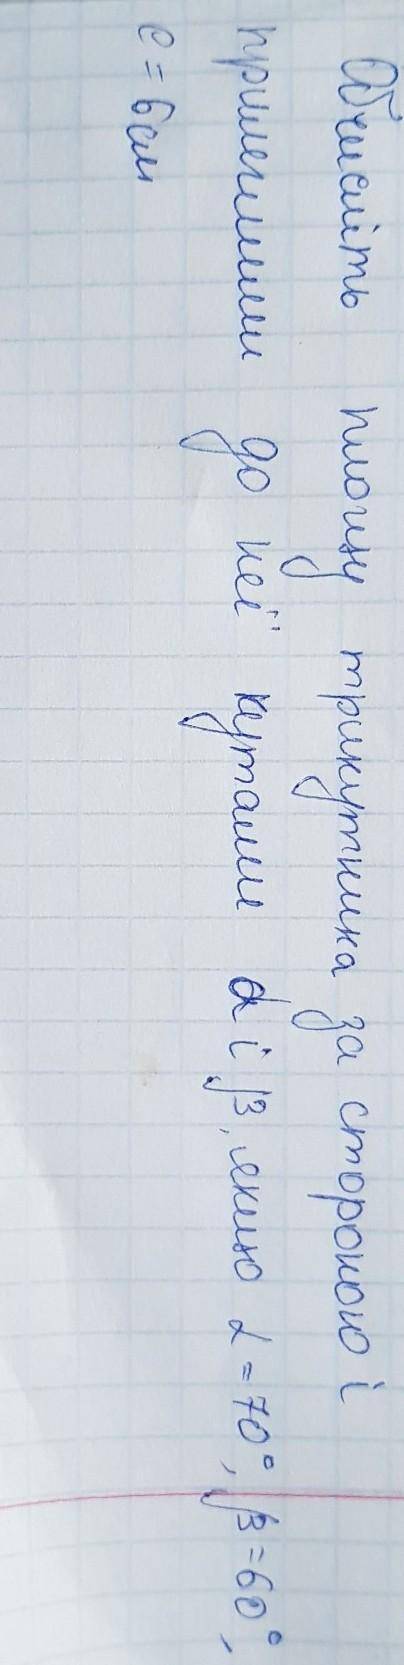 Обчисліть площу трикутника за стороною і
прилеглими до неї кутами α і β, якщо α = 70°, β = 60°,
c = 6 см